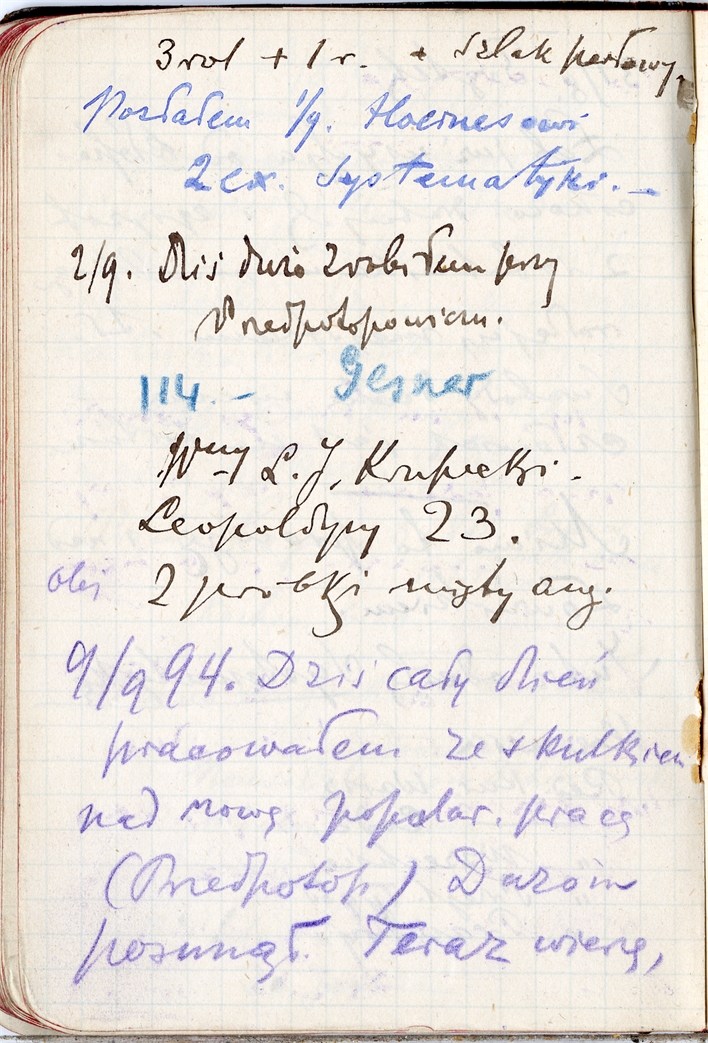 3 rol + 1 r. + szlak perłowy,
Posłałem 1/9. Hoernesowi
2 ex. Systematyki. –
2/9. Dziś dużo zrobiłem przy
Przedpotopowiem.
114. – Gesner
Wny L. J. Krupecki.
Leopoldyny 23.
obi 2 próbki między ang.
9/9 94. Dziś cały dzień
pracowałem ze skutkiem
nad nową popular. pracą
(Przedpotop)
posunął. Teraz wierzę,